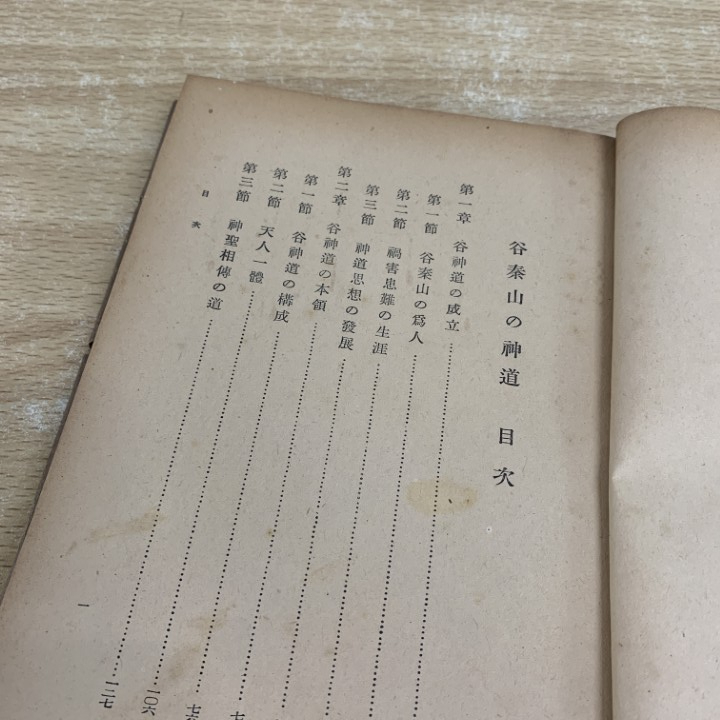 谷秦山の神道 目次
第一章 谷神道の成立
第一節 谷秦山の爲人
第二節 禍害患難の生涯
第三節 神道思想の發展
第二章 谷神道の本領
第一節 谷神道の構成
第二節 天人一體 一〇六
第三節 神聖相傳の道 一二七
目次
一